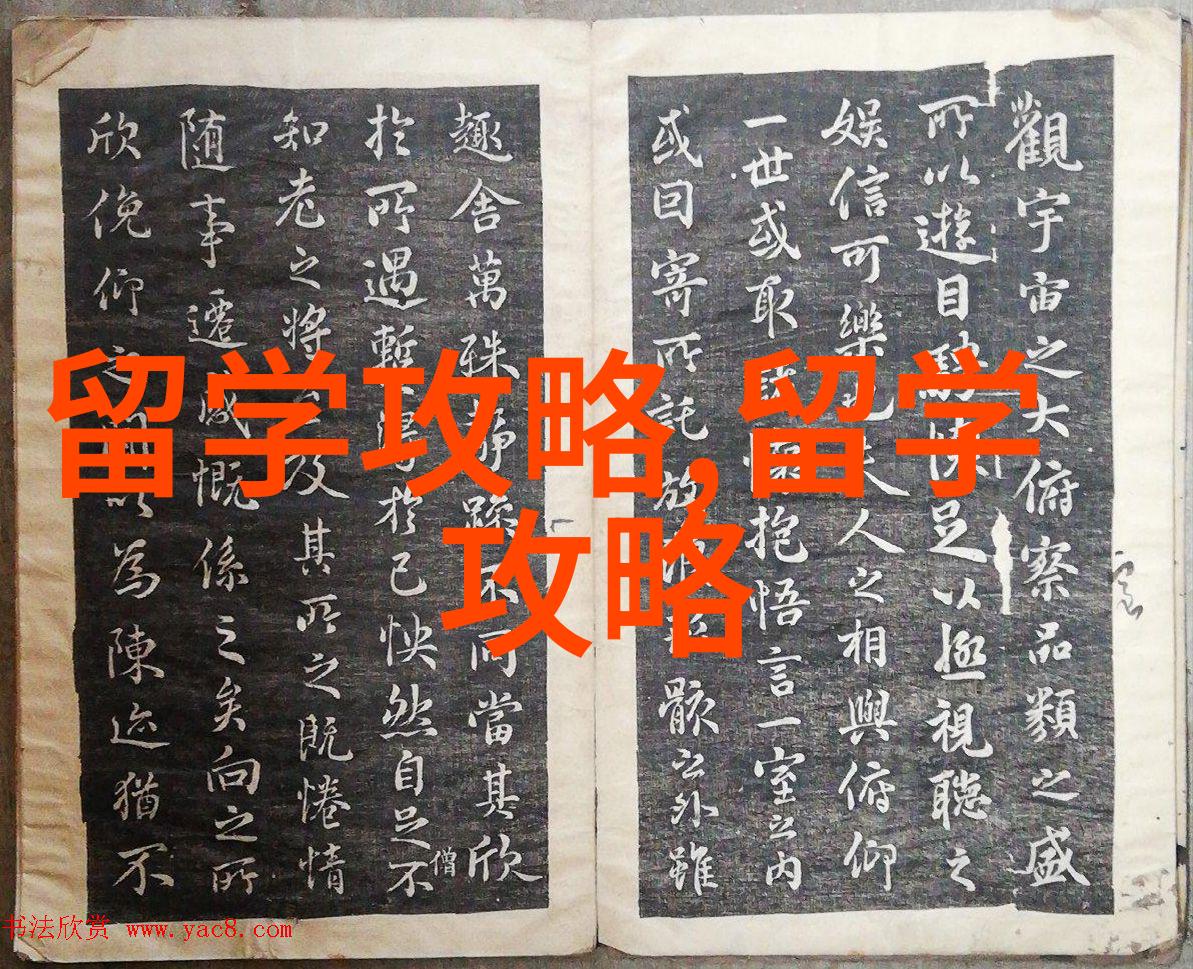 留学攻略,留学
攻略
觀宇宙之大俯察品類之盛
所以遊目騁懷足以極視聽之
娛信可樂也夫人之相與俯仰
一世或取諸懷抱悟言一室之內
或因寄所託放浪形骸之外雖
趣舍萬殊靜躁不同當其欣
於所遇暫得於己怏然自足不
僧
知老之將至及其所之既惓情
随事遷感慨係之矣向之所
欣俛仰之間以為陳迹猶不
书法欣赏 www.yac8.com